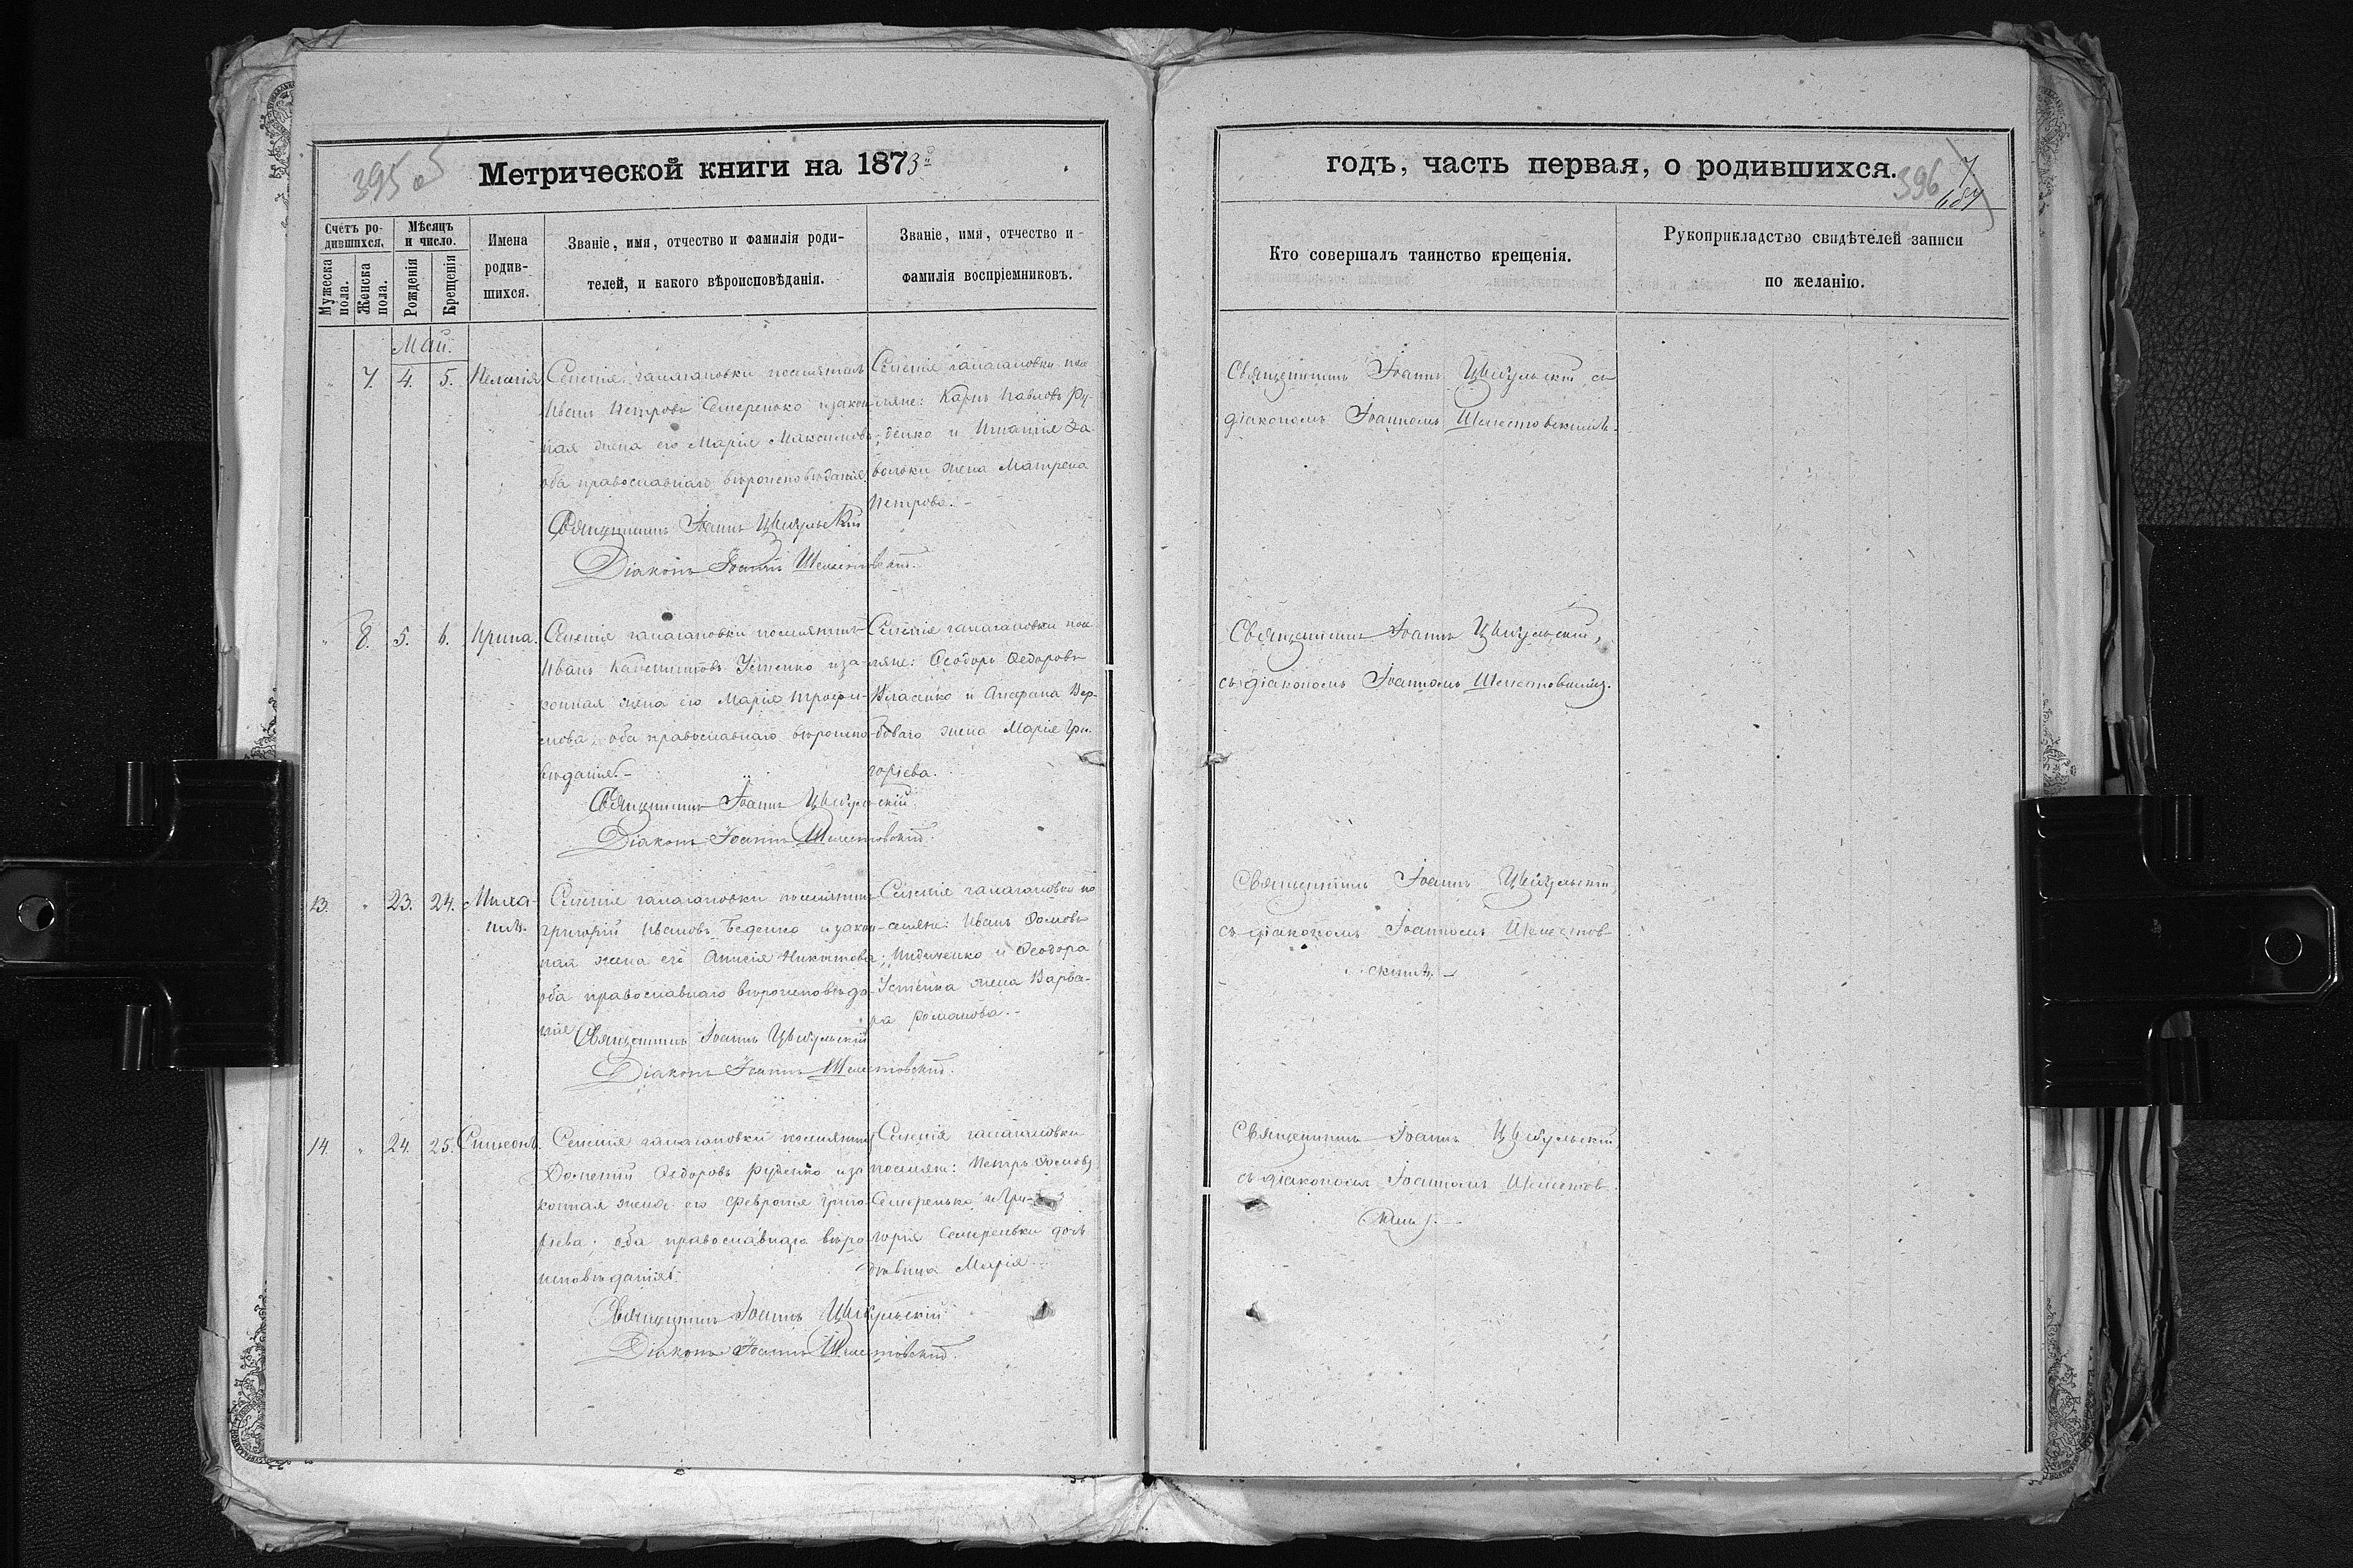 395 об
Метрической книги на 1873й
Счетъ ро-
дившихся.
Мужеска пола.
Женска пола.
Мѣсяцъ
и число.
Рожденія
Крещенія
Имена
родив-
шихся.
Званіе, имя, отчество и фамилія роди-
телей, и какого вѣроисповѣданія.
Званіе, имя, отчество и
фамилія воспріемниковъ.
Май.
" 7. 4. 5. Пелагія
Селенія галагановки поселянинъ
Иванъ Петровъ Семеренько и закон-
ная жена его Марія Максимова;
оба православнаго вѣроисповѣданія.
Священникъ Іоаннъ Цыбульскій
Діаконъ Іоаннъ Шелестовскій.
Селенія галагановки посе
ляне: Карпъ Павловъ Ру-
денко и Игнатія За
волоки жена Матрена
Петрова.-
" 8. 5. 6. Ирина.
Селенія галагановки поселянинъ
Иванъ Устенко и за-
конная жена его Марія Трофи-
мова; оба православнаго вѣроиспо-
вѣданія.-
Священникъ Іоаннъ Цыбульскій
Діаконъ Іоаннъ Шелестовскій.
Селенія галагановки посе
ляне: Ѳеодоръ Ѳедоровъ
Власенко и Агафана Вер-
боваго жена Марія Гри-
горіева.
13. " 23. 24. Миха-
илъ.
Селенія галагановки поселянинъ
Григорій Ивановъ Беденко и закон-
ная жена его Анисія Никитова;
оба православнаго вѣроисповѣда-
нія
Священникъ Іоаннъ Цыбульскій
Діаконъ Іоаннъ Шелестовскій.
Селенія галагановки по
селяне: Иванъ Ѳомовъ
и Ѳеодора
Устенка жена Варва-
ра Романова.-
14. " 24. 25. Симеонъ.
Селенія галагановки поселянинъ
Дометій Ѳедоровъ Руденко и за
конная жена его Февронія Григо
ріева; оба православнаго вѣро
исповѣданія.
Священникъ Іоаннъ Цыбульскій
Діаконъ Іоаннъ Шелестовскій.
Селенія галагановки
поселяне: Петръ Ѳомовъ
Семеренько и Гри-
горія Семереньки дочь
дѣвица Марія.
годъ, часть первая, о родившихся.
396
7
Кто совершалъ таинство крещенія.
Рукоприкладство свидѣтелей записи
по желанію.
Священникъ Іоаннъ Цыбульскій, съ
діакономъ Іоанномъ Шелестовскимъ.
Священникъ Іоаннъ Цыбульскій,
съ діакономъ Іоанномъ Шелестовскимъ.
Священникъ Іоаннъ Цыбульскій,
съ діакономъ Іоанномъ Шелестов-
скимъ.-
Священникъ Іоаннъ Цыбульскій
съ діакономъ Іоанномъ Шелестов-
скимъ.-